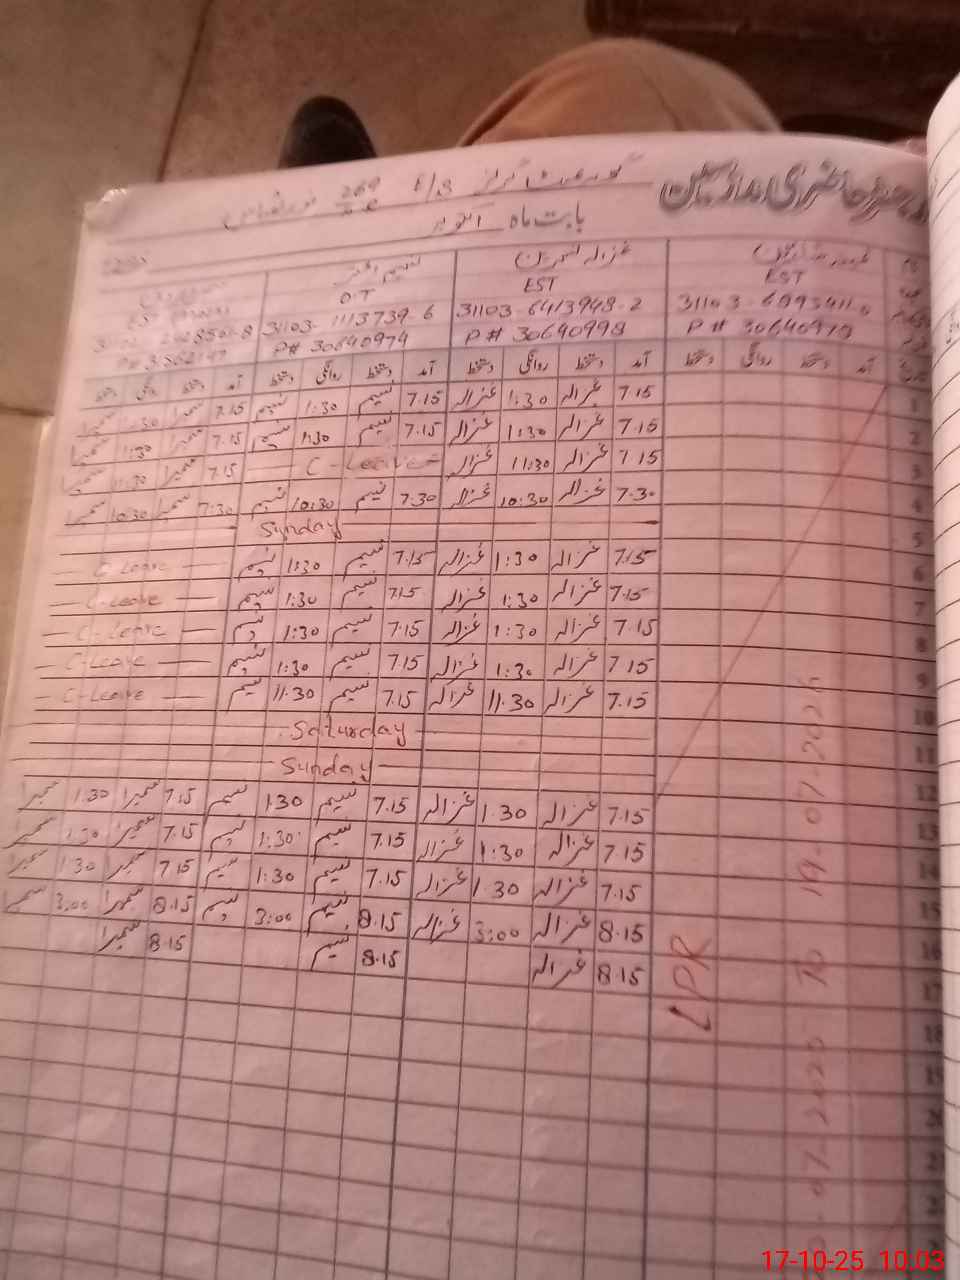 رجسٹر حاضری مدرسین
گورنمنٹ گرلز E/S 269
بابت ماہ اکتوبر
غزالہ نسرین نسیم اختر
EST EST O.T
31103-6413948-2 31103-1113739-6
P# 30640979 P# 30640998 P# 30640974
آمد دستخط روانگی دستخط آمد دستخط روانگی دستخط آمد دستخط روانگی دستخط آمد دستخط روانگی دستخط
1 7.15 غزالہ 1:30 غزالہ 7.15 نسیم 1:30 نسیم 7.15 سمیرا 1:30 سمیرا
2 7.15 غزالہ 1:30 غزالہ 7.15 نسیم 1:30 نسیم 7.15 سمیرا 1:30 سمیرا
3 7.15 غزالہ 11:30 غزالہ C-Leave 7.15 سمیرا 11:30 سمیرا
4 7.30 غزالہ 10:30 غزالہ 7.30 نسیم 10:30 نسیم 7:30 سمیرا 10:30 سمیرا
5 Sunday
6 7.15 غزالہ 1:30 غزالہ 7.15 نسیم 1:30 نسیم C-Leave
7 7.15 غزالہ 1:30 غزالہ 7.15 نسیم 1:30 نسیم C-Leave
8 7.15 غزالہ 1:30 غزالہ 7.15 نسیم 1:30 نسیم C-Leave
9 7.15 غزالہ 1:30 غزالہ 7.15 نسیم 1:30 نسیم C-Leave
10 7.15 غزالہ 11.30 غزالہ 7.15 نسیم 11.30 نسیم C-Leave
11 Saturday
12 Sunday
13 7.15 غزالہ 1.30 غزالہ 7.15 نسیم 1.30 نسیم 7.15 سمیرا 1.30 سمیرا
14 7.15 غزالہ 1:30 غزالہ 7.15 نسیم 1:30 نسیم 7.15 سمیرا 1:30 سمیرا
15 7.15 غزالہ 1.30 غزالہ 7.15 نسیم 1:30 نسیم 7.15 سمیرا 1:30 سمیرا
16 8.15 غزالہ 3:00 غزالہ 8.15 نسیم 3:00 نسیم 8.15 سمیرا 3:00 سمیرا
17 8.15 غزالہ 8.15 نسیم 8.15 سمیرا
18
19
20
LPR
07-2025 To 19-07-2026
17-10-25 10.03